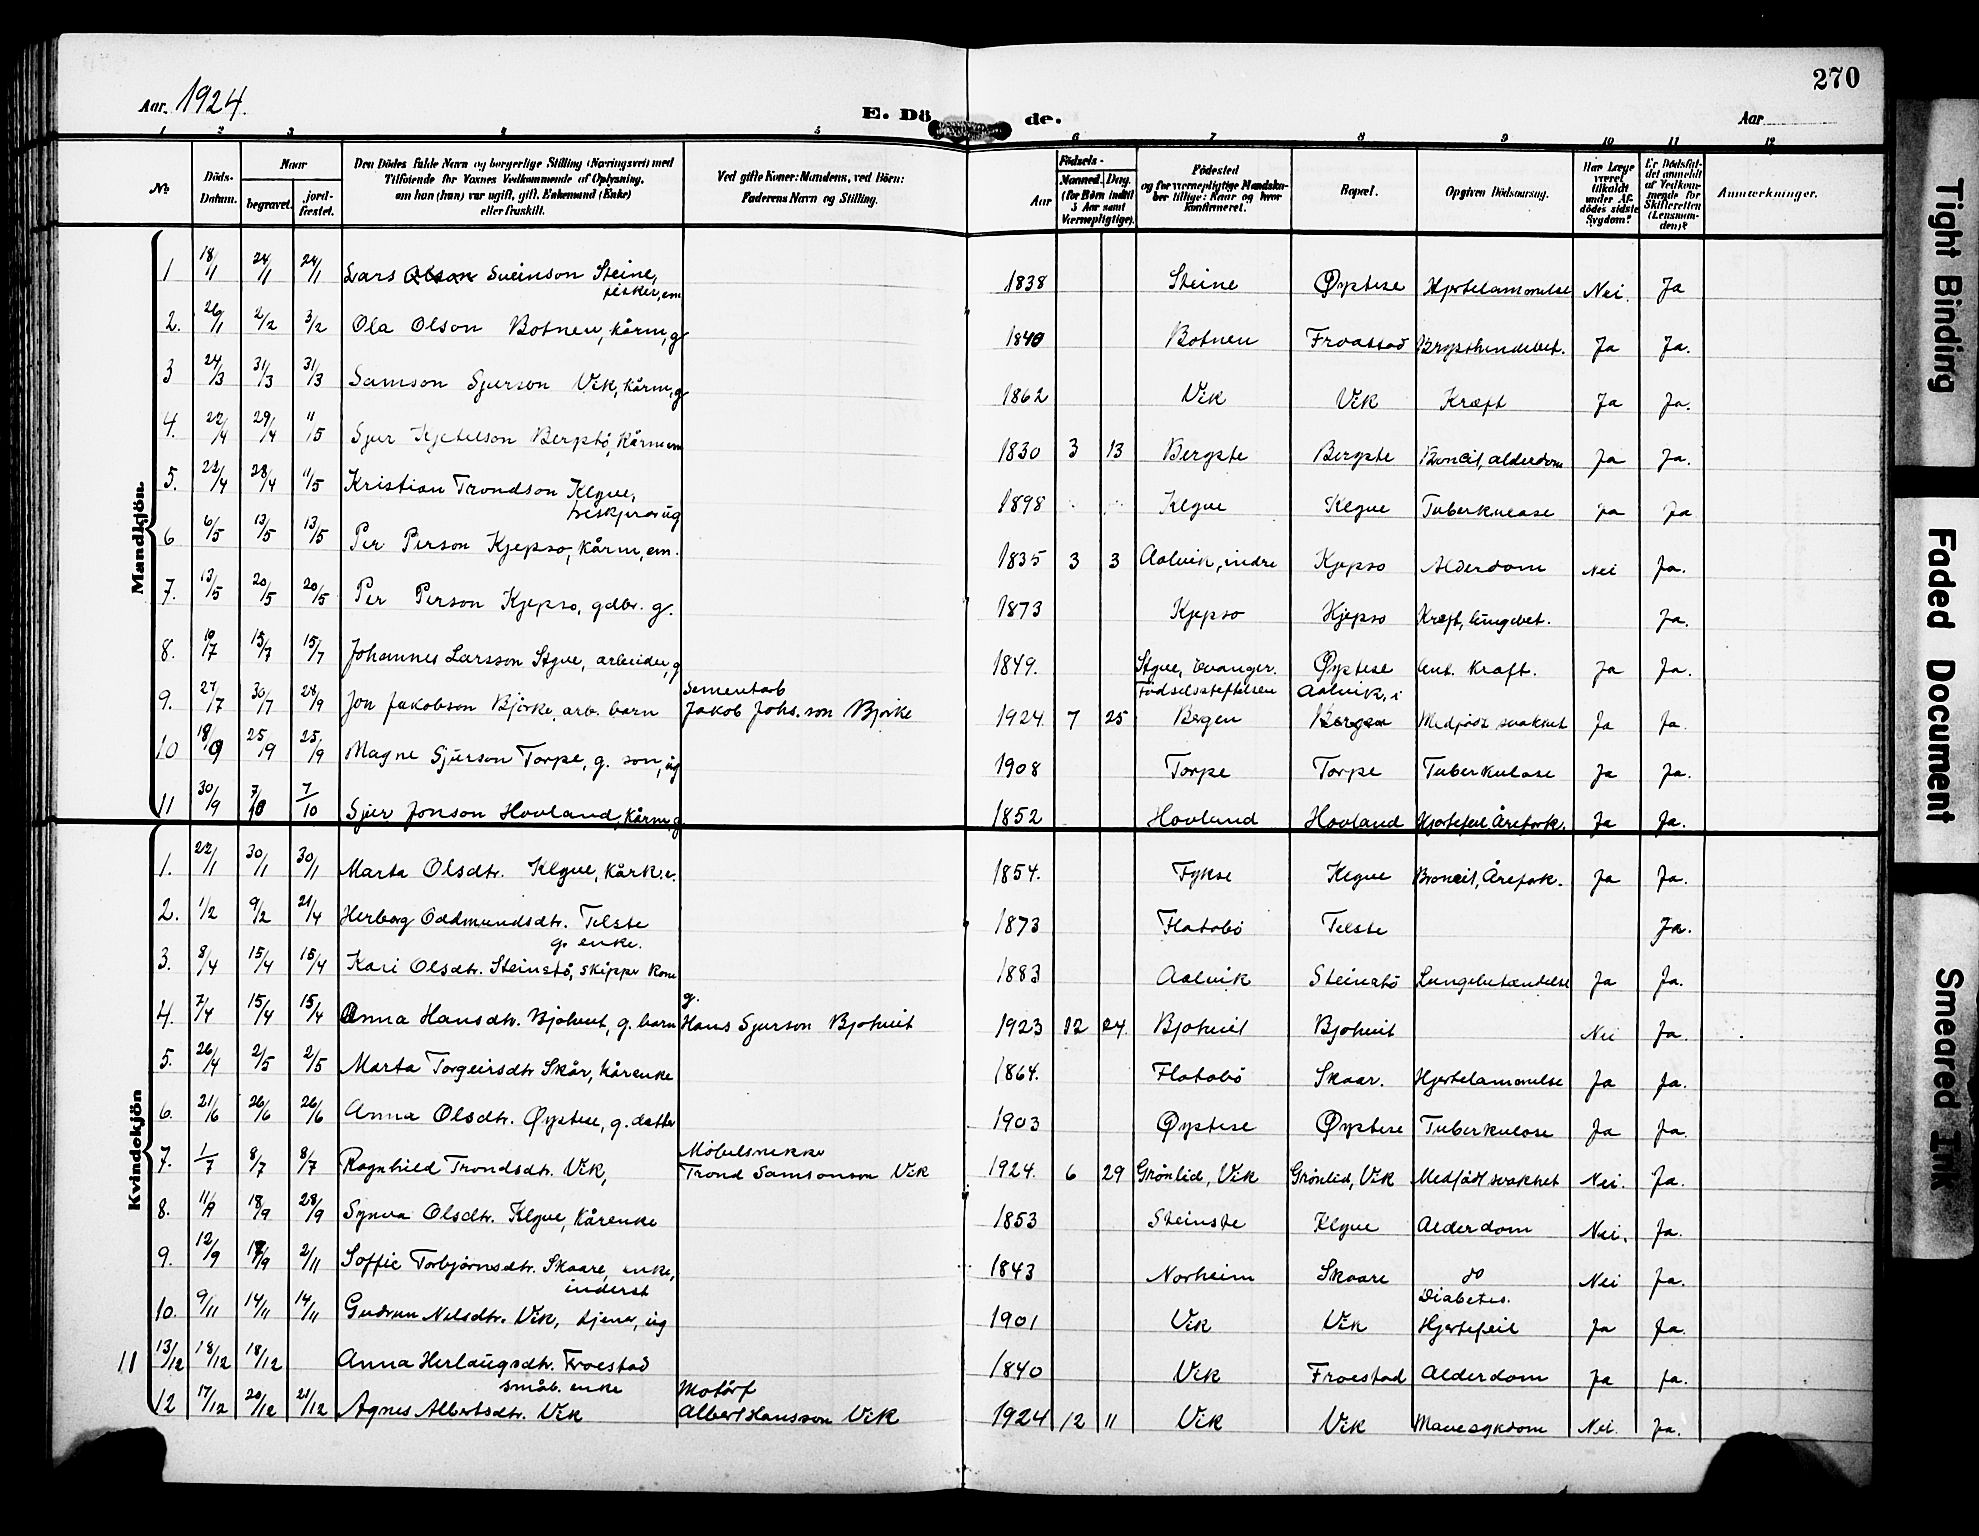 270
Aar. 1924.
E. Dö de.
Aar
1 2 3 4 5 6 7 8 9 10 11 12
№
Döds-Datum.
Naar
begravet.
jord-fæstet.
Den Dödes fulde Navn og borgerlige Stilling (Næringsvei) med
Tilföiende for Voxnes Vedkommende af Oplysning,
om han (hun) var ugift, gift, Enkemand (Enke)
eller fraskilt.
Ved gifte Koner: Mandens, ved Börn:
Faderens Navn og Stilling.
Födsels-
Aar
Maaned. Dag.
(for Börn indtil
5 Aar samt
Værnepligtige).
Födested
og for værnepligtige Mandska-
ber tillige: Naar og hvor
konfirmeret.
Bopæl.
Opgiven Dödsaarsag.
Har Læge
været
tilkaldt
under Af-
dödes sidste
Sygdom?
Er Dödsfal-
det anmeldt
af Vedkom-
mende for
Skifteretten
(Lensman-
den)?
Anmærkninger.
Mandkjön.
1 18/1 24/1 24/1 Lars Olson Sveinson Steine, fisker, em 1838 Steine Øystese Hjertelammelse Nei. Ja
2. 26/1 2/2 3/2 Ola Olson Botnen, kårm, g 1840 Botnen Froastad Brysthindebet. Ja Ja.
3 24/3 31/3 31/3 Samson Sjurson Vik, kårm, g 1862 Vik Vik Kræft Ja Ja.
4. 22/4 29/4 11/5 Sjur Kjetelson Bergstö, Kårm em 1830 3 13 Bergste Bergste Broncit, alderdom Ja Ja.
5. 22/4 28/4 11/5 Kristian Trondson Klyve, 1898 Klyve Klyve Tuberkulose Ja Ja
6 6/5 13/5 13/5 Per Person Kjepso, Kårm, em. 1835 3 3 Aalvik, indre Kjepso Alderdom Nei Ja.
7. 13/5 20/5 20/5 Per Person Kjepso, gdbr. g. 1873 Kjepso Kjepso Kræft, lungebet. Ja.
8. 10/7 15/7 15/7 Johannes Larsson Styve, arbeider, g 1849. Styve, Evanger. Øystese Ja Ja.
Sementarb Fødselsstiftelsen Aalvik, i
9. 27/7 30/7 28/9 Jon Jakobson Björke, arb. barn Jakob Johs.son Bjørke 1924 7 25 Bergen Bergen Medfødt svakhet Ja Ja.
10 18/9 25/9 25/9 Magne Sjurson Torpe, g. son, ug 1908 Torpe Torpe Tuberkulose Ja Ja.
11 30/9 7/10 7/10 Sjur Jonson Hovland, Kårm, g 1852 Hovland Hovland Hjertefeil Årefork. Ja Ja.
Kvindekjön
1. 22/1 30/1 30/1 Marta Olsdtr. Klyve, Kårk. e. 1854. Fykse Klyve Broncit, Årefork. Ja Ja.
2. 1/2 9/2 21/4 Herborg Oddmundsdtr. Telste g. enke. 1873 Flotabö Telste Ja.
3. 8/4 15/4 15/4 Kari Olsdtr. Steinstö, skipper kone 1883 Aalvik Steinstö Lungebetændelse Ja Ja.
g.
4. 7/4 15/4 15/4 Anna Hansdtr. Bjotveit, g. barn Hans Sjurson Bjotveit 1923 12 24 Bjotveit Bjotveit Nei Ja.
5. 26/4 2/5 2/5 Marta Torgeirsdtr Skår, kårenke 1864. Flotabö Skaar. Hjertelammelse Ja Ja.
6. 21/6 26/6 26/6 Anna Olsdtr. Øystese, g. datter 1903 Øystese Øystese Tuberkulose Ja Ja.
Møbelsnekker
7. 1/7 8/7 8/7 Ragnhild Trondsdtr. Vik, Trond Samsonson Vik 1924. 6 29 Grönlid, Vik Grönlid, Vik Medfødt svakhet Nei. Ja.
8. 11/9 18/9 28/9 Synva Olsdtr. Klyve, Kårenke 1853 Steinste Klyve Alderdom Nei. Ja.
9. 12/9 18/9 2/11 Soffie Torbjørnsdtr. Skaare, enke, inderst 1843 Norheim Skaare do Nei Ja.
10. 9/11 14/11 14/11 Gudrun Nilsdtr. Vik, tjener, ug 1901 Vik Vik Diabetes. Hjertefeil Ja Ja.
11 13/12 18/12 18/12 Anna Herlaugsdtr. Froestad småb. enke 1840 Vik Froestad Alderdom Ja Ja.
Motörf
12 17/12 20/12 21/12 Agnes Albertsdtr. Vik Albert Hansson Vik 1924 12 11 Vik Vik Mavesykdom Nei. Ja.
Tight Binding
Faded Document
Smeared Ink